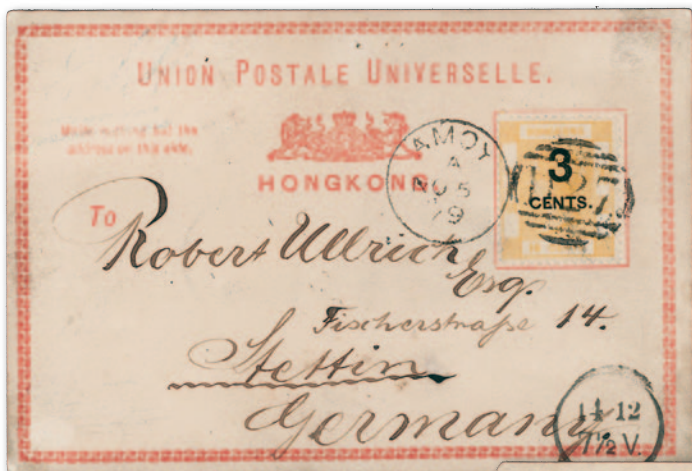 UNION POSTALE UNIVERSELLE.
Write nothing but the
address on this side.
HONGKONG
AMOY
A
5
79
3
CENTS.
To
Robert Ullrich
Esq.
Fischerstraße 14.
Stettin
Germany.
14 12
1½ V.